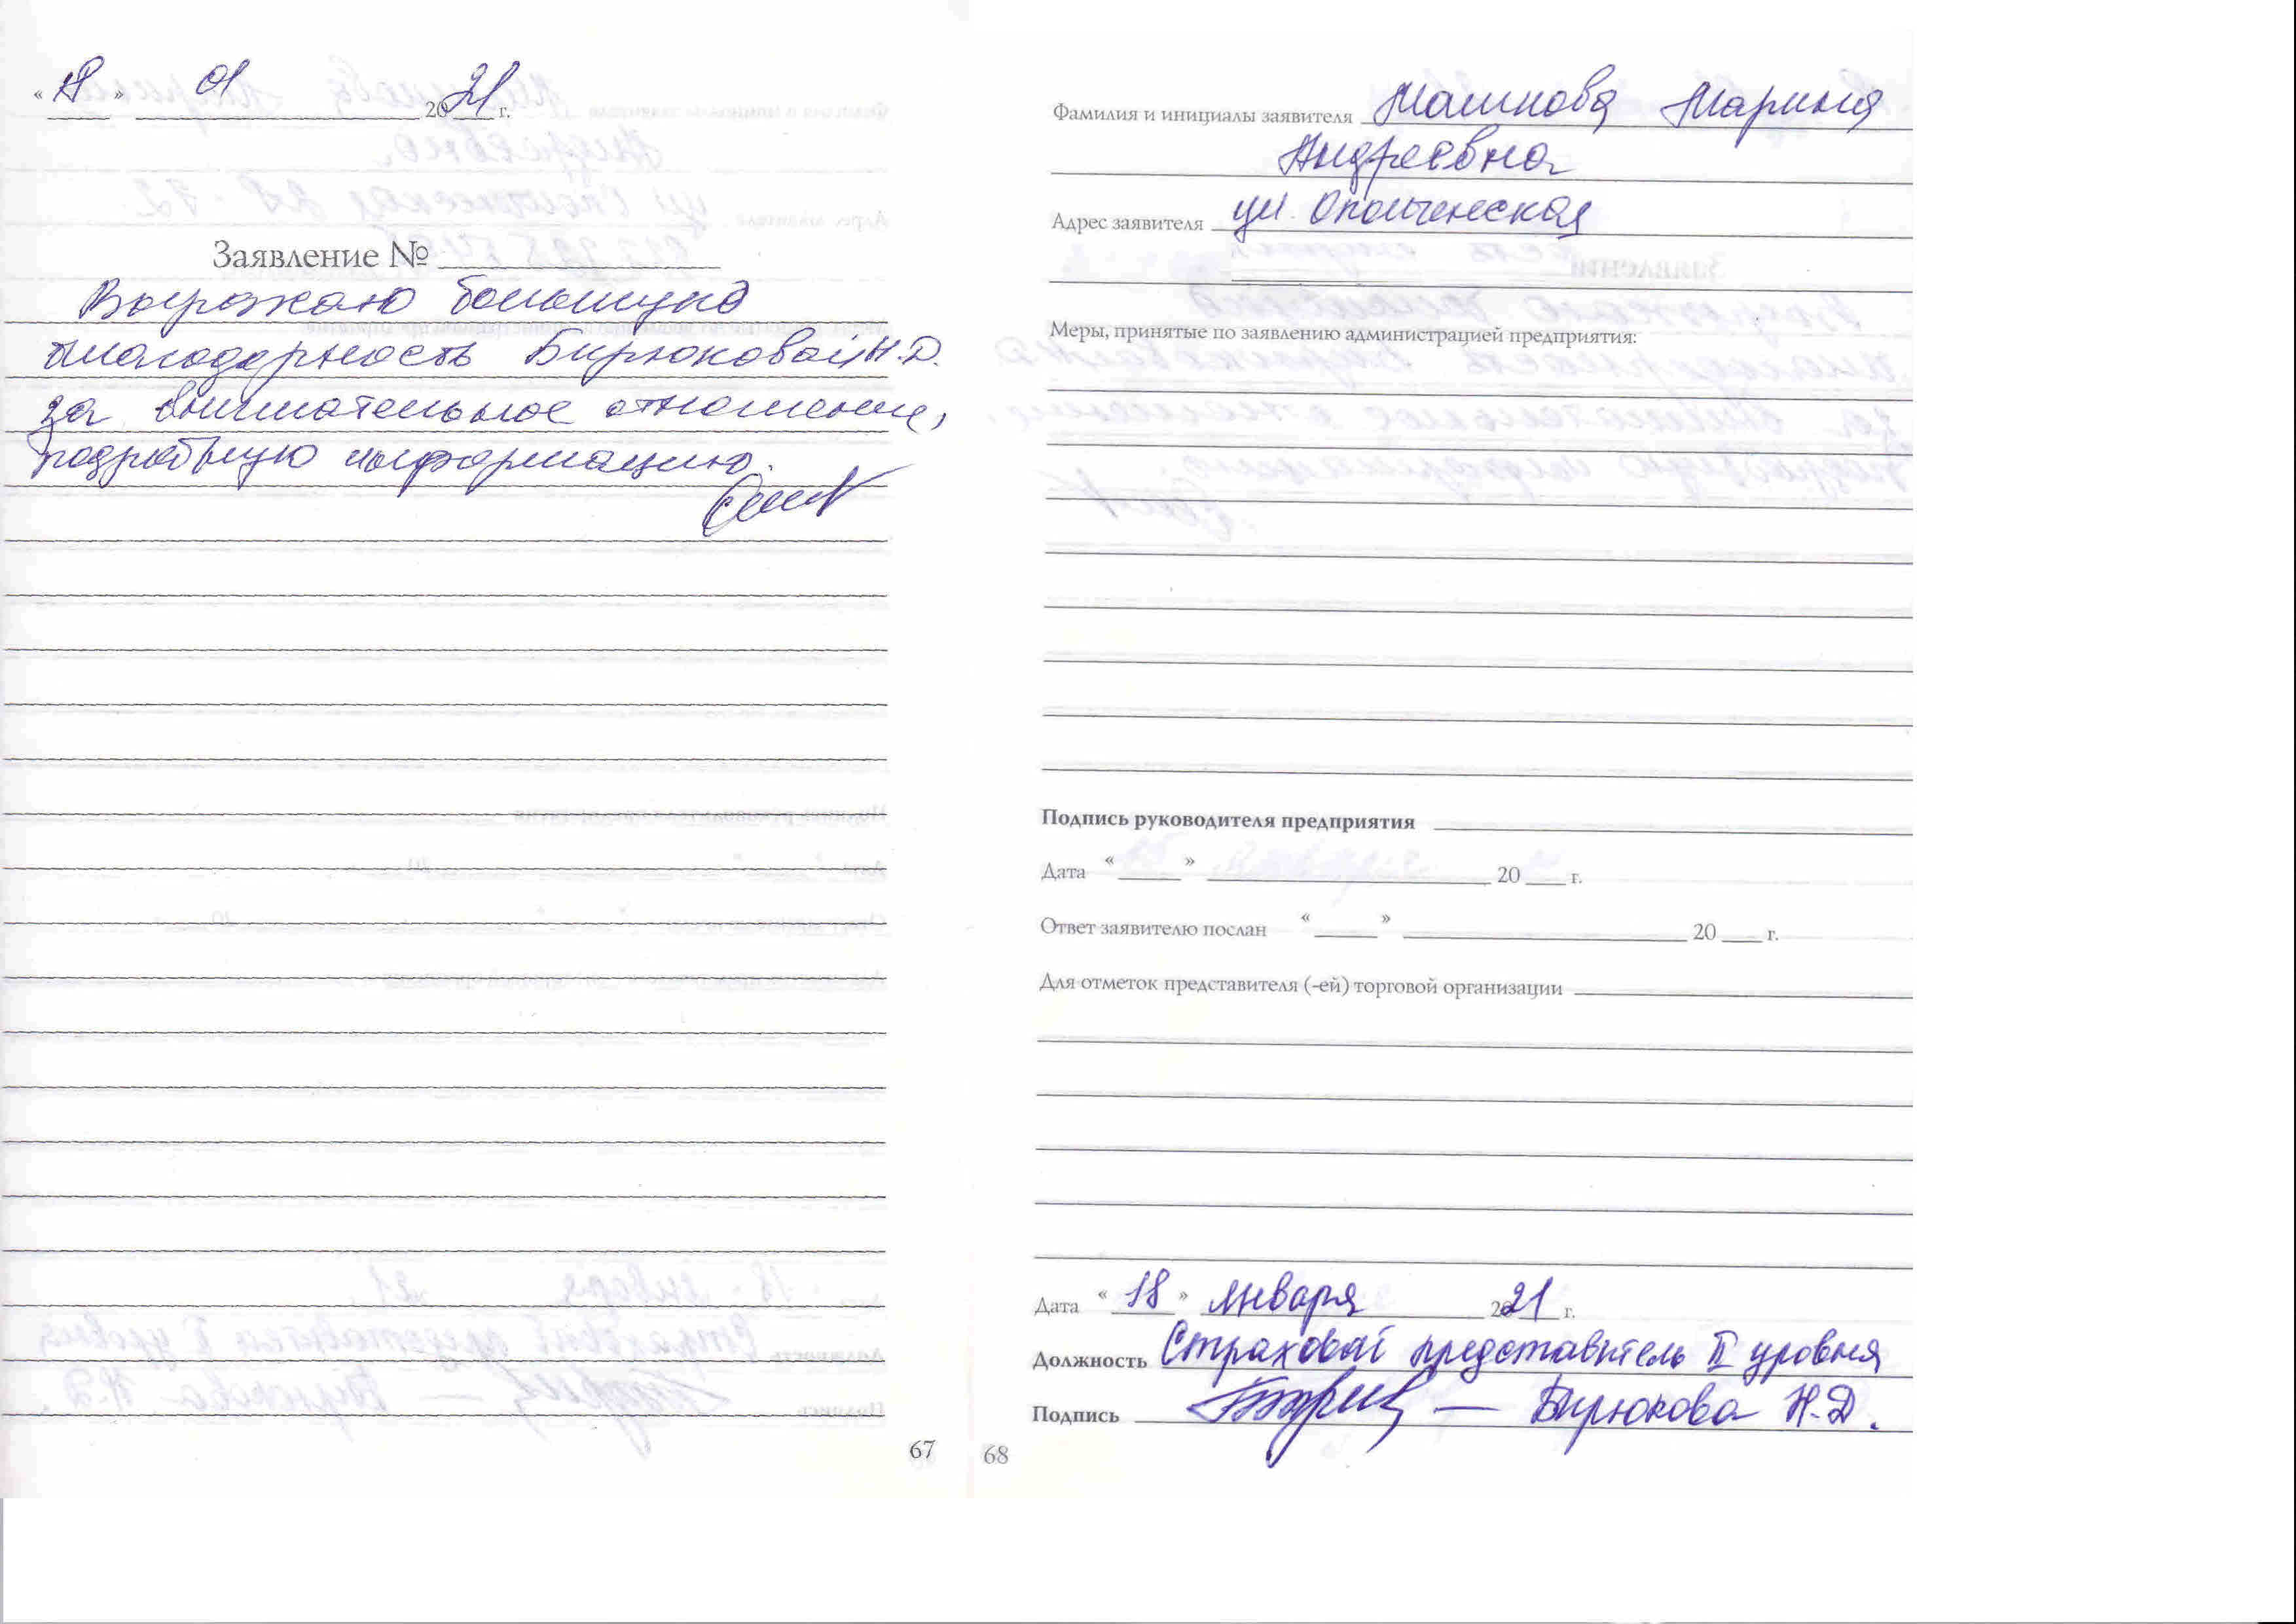 « 18 » 01 2021 г.
Заявление №
Выражаю большую
благодарность Бирюковой Н.Д.
за внимательное отношение,
подробную информацию.
67
Фамилия и инициалы заявителя Машкова Марина
Андреевна
Адрес заявителя ул. Ополченская
Меры, принятые по заявлению администрацией предприятия:
Подпись руководителя предприятия
Дата « » 20 г.
Ответ заявителю послан « » 20 г.
Для отметок представителя (-ей) торговой организации
Дата « 18 » января 2021 г.
Должность Страховой представитель II уровня
Подпись — Бирюкова Н.Д.
68